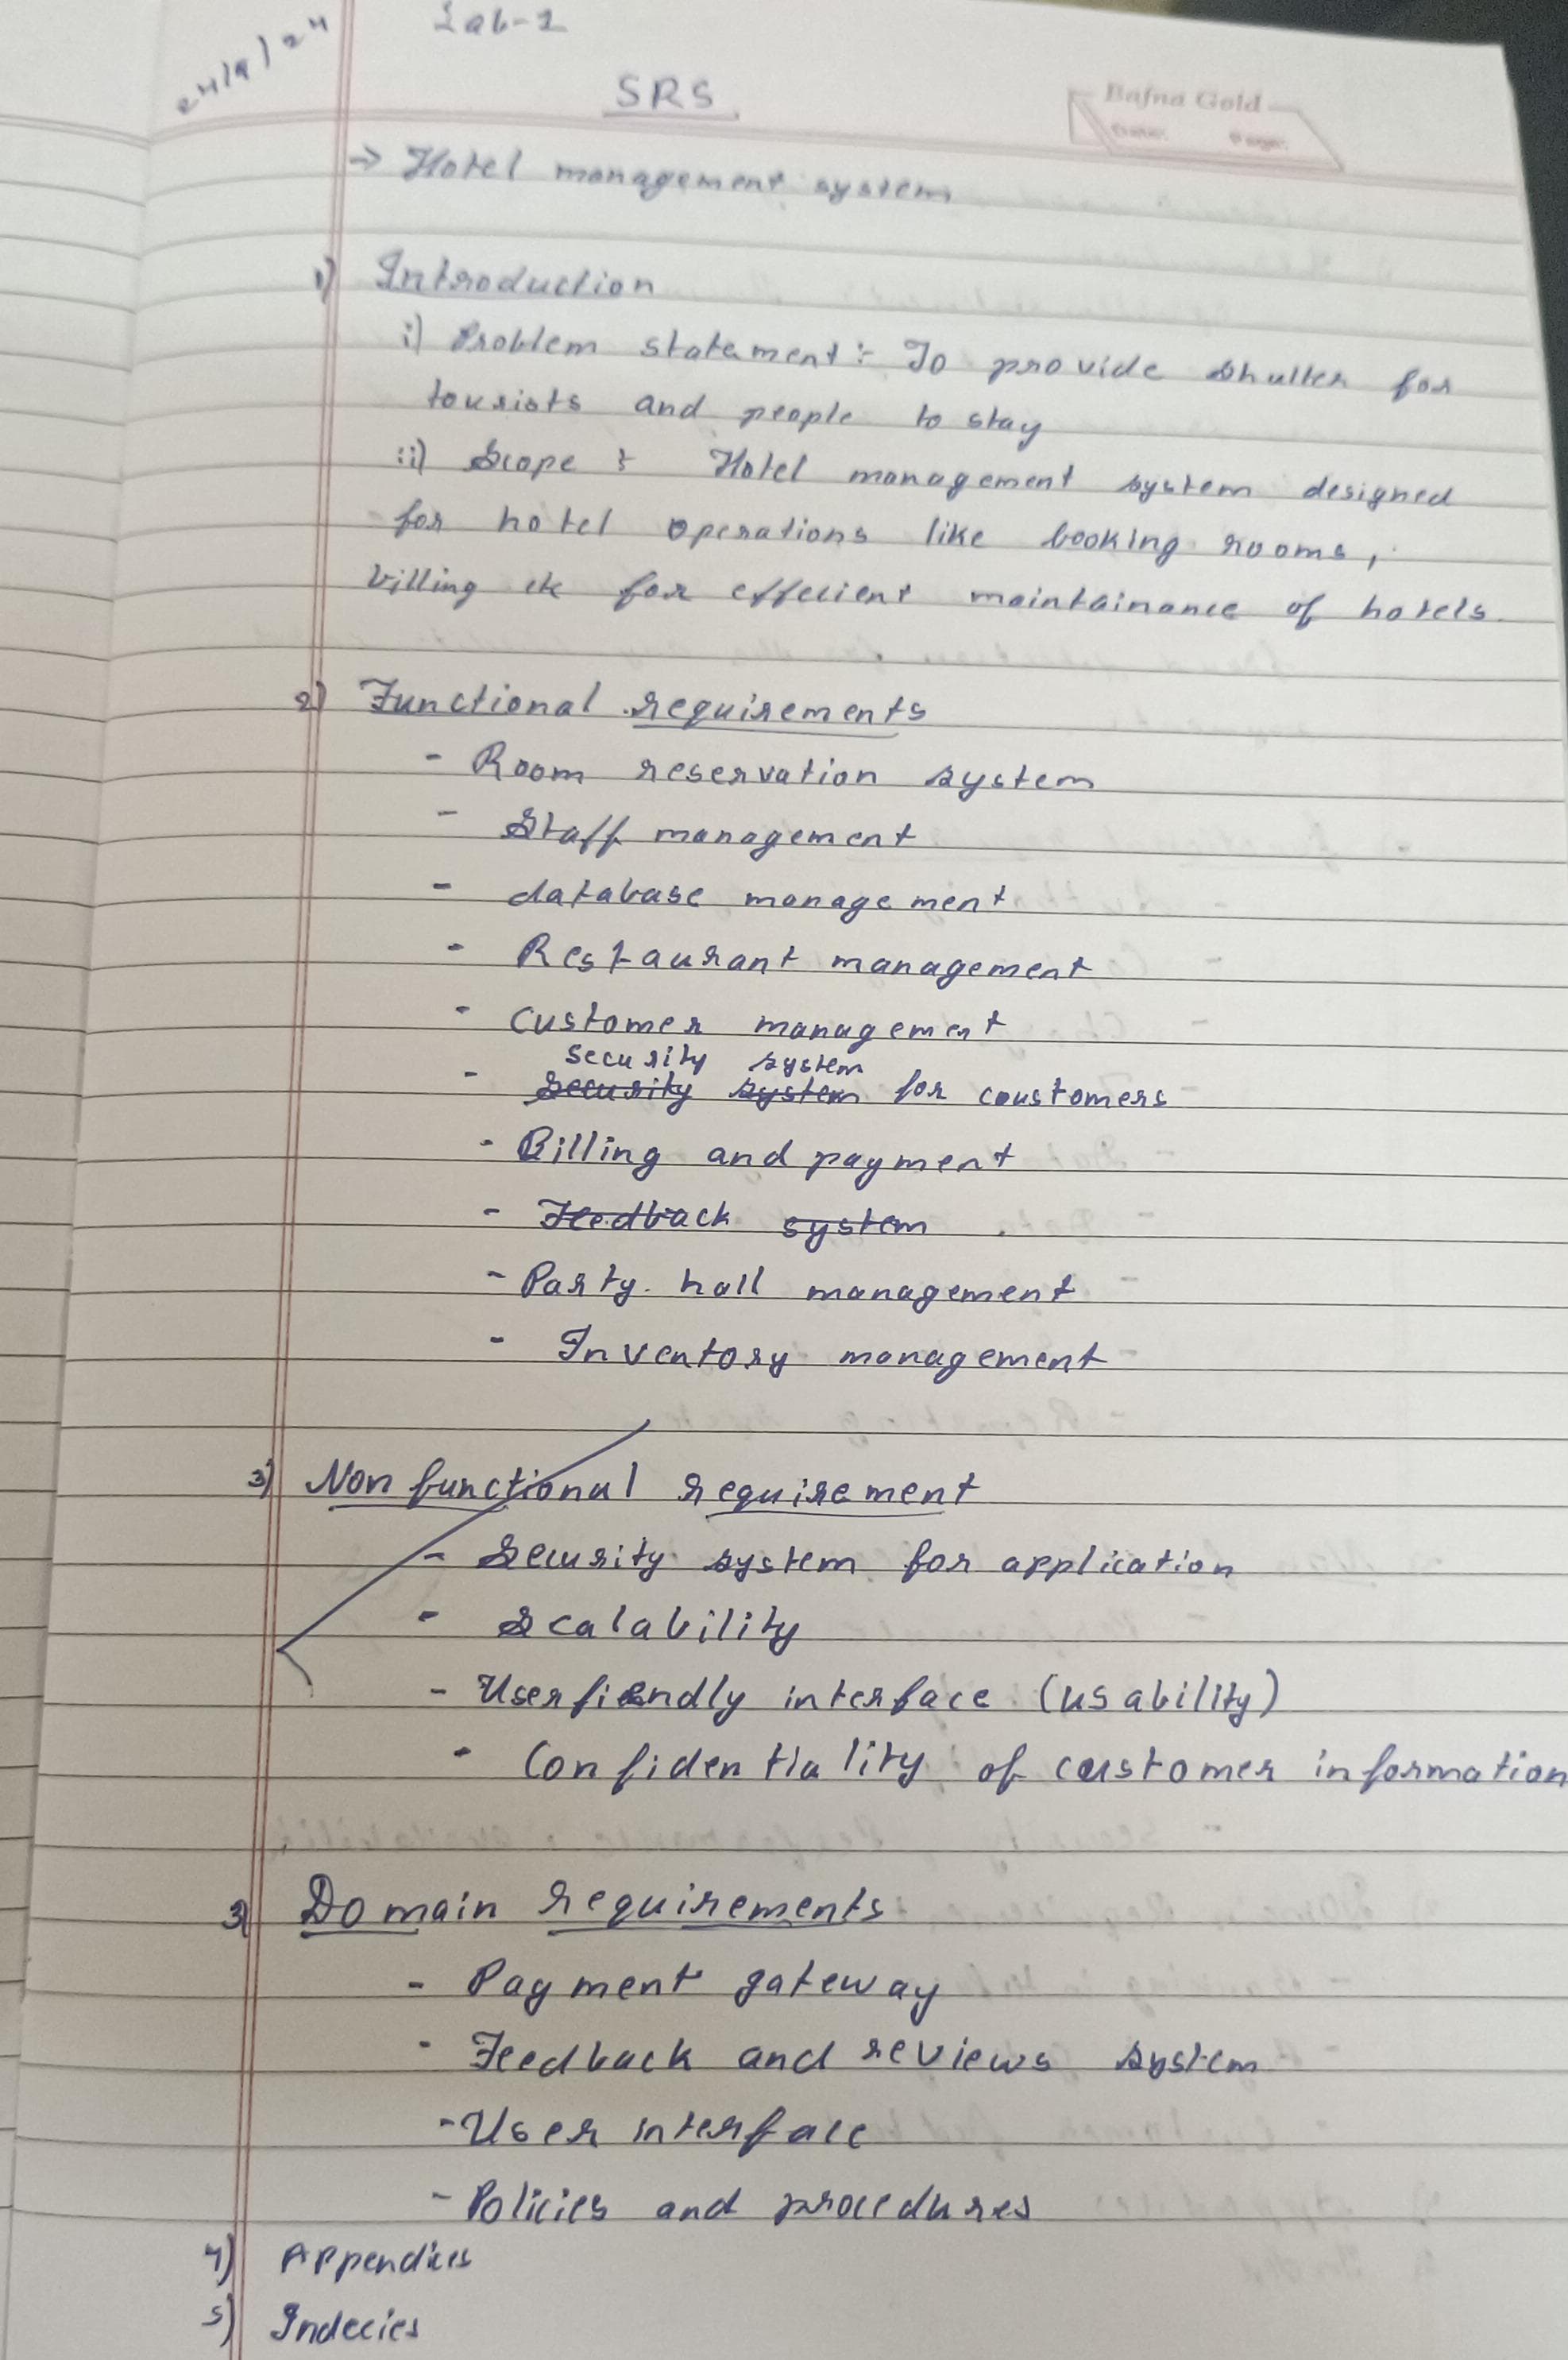 24/9/24
Lab-1
SRS
Bafna Gold
Date: Page:
→ Hotel management system
1) Introduction
i) Problem statement :- To provide shulter for
tourists and people to stay
ii) Scope : Hotel management system designed
for hotel operations like booking rooms,
billing etc for effecient maintainance of hotels.
2) Functional requirements
- Room reservation system
- Staff management
- database management
- Restaurant management
- customer management
security system
- Security system for coustomers
- Billing and payment
- Feedback system.
- Party hall management
- Inventory management
3) Non functional requirement
- Security system for application
- Scalability
- Userfiendly interface (usability)
- Confidentiality of customer information
3) Domain requirements
- Payment gateway
- Feedback and reviews system
- User interface
- Policies and procedures
4) Appendices
5) Indecies